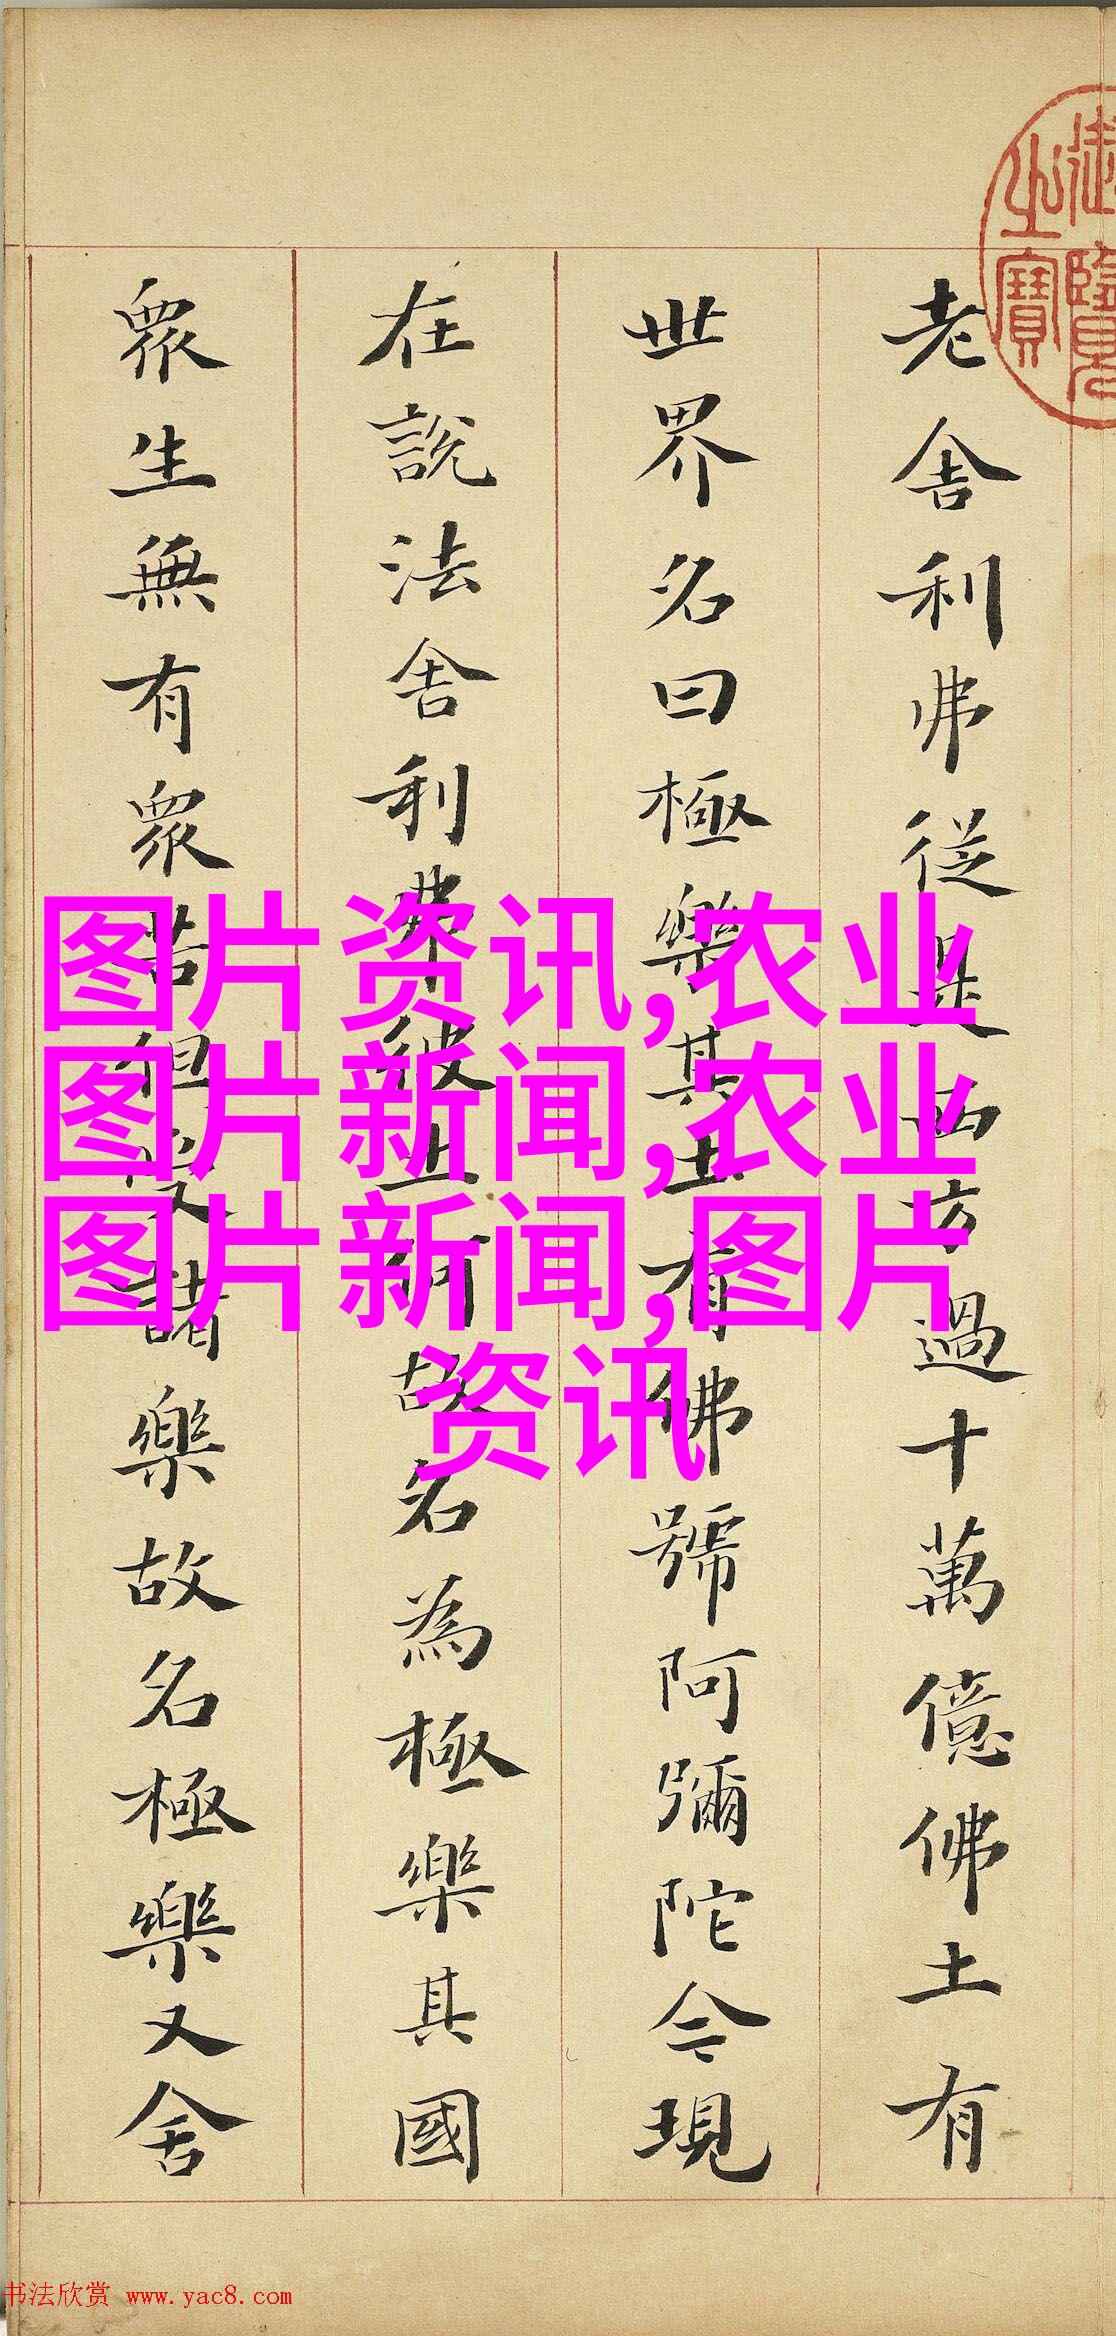 御覽之寶
老舍利弗從是西方過十萬億佛土有
世界名曰極樂其土有佛號阿彌陀今現
在說法舍利弗彼土何故名為極樂其國
眾生無有眾苦但受諸樂故名極樂又舍
图片资讯,农业
图片新闻,农业
图片新闻,图片
资讯
书法欣赏 www.yac8.com